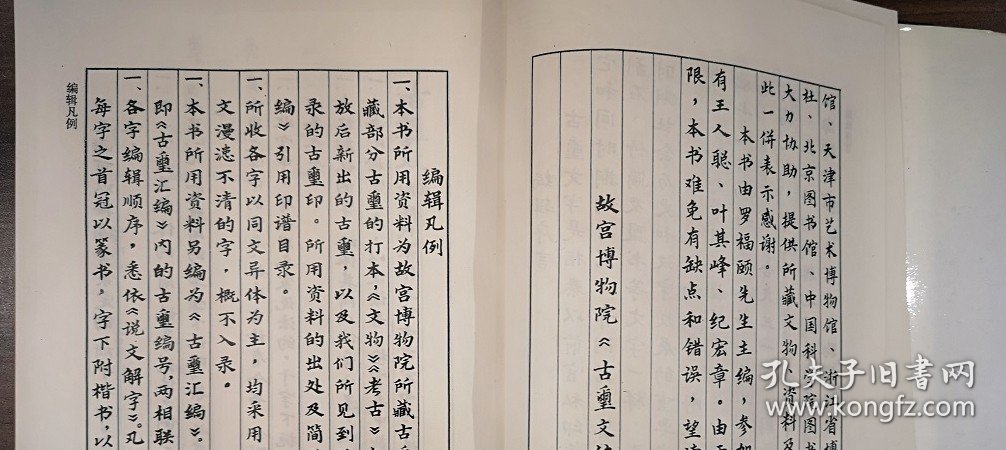 馆、天津市艺术博物馆、浙江省博
杜、北京图书馆、中国科学院图书
大力协助，提供所藏文物、资料及
此一併表示感谢。
本书由罗福颐先生主编，参加
有王人聪、叶其峰、纪宏章。由于
限，本书难免有缺点和错误，望读
故宫博物院《古玺文编
编辑凡例
一、本书所用资料为故宫博物院所藏古玺
藏部分古玺的打本，《文物》《考古》
放后新出的古玺，以及我们所见到
录的古玺印。所用资料的出处及简
编》引用印谱目录。
一、所收各字以同文异体为主，均采用
文漫漶不清的字，概不入录。
一、本书所用资料另编为《古玺汇编》。
即《古玺汇编》内的古玺编号，两相联
一、各字编辑顺序，悉依《说文解字》。凡
每字之首冠以篆书。字下附楷书，以
编辑凡例
孔夫子旧书网
www.kongfz.com